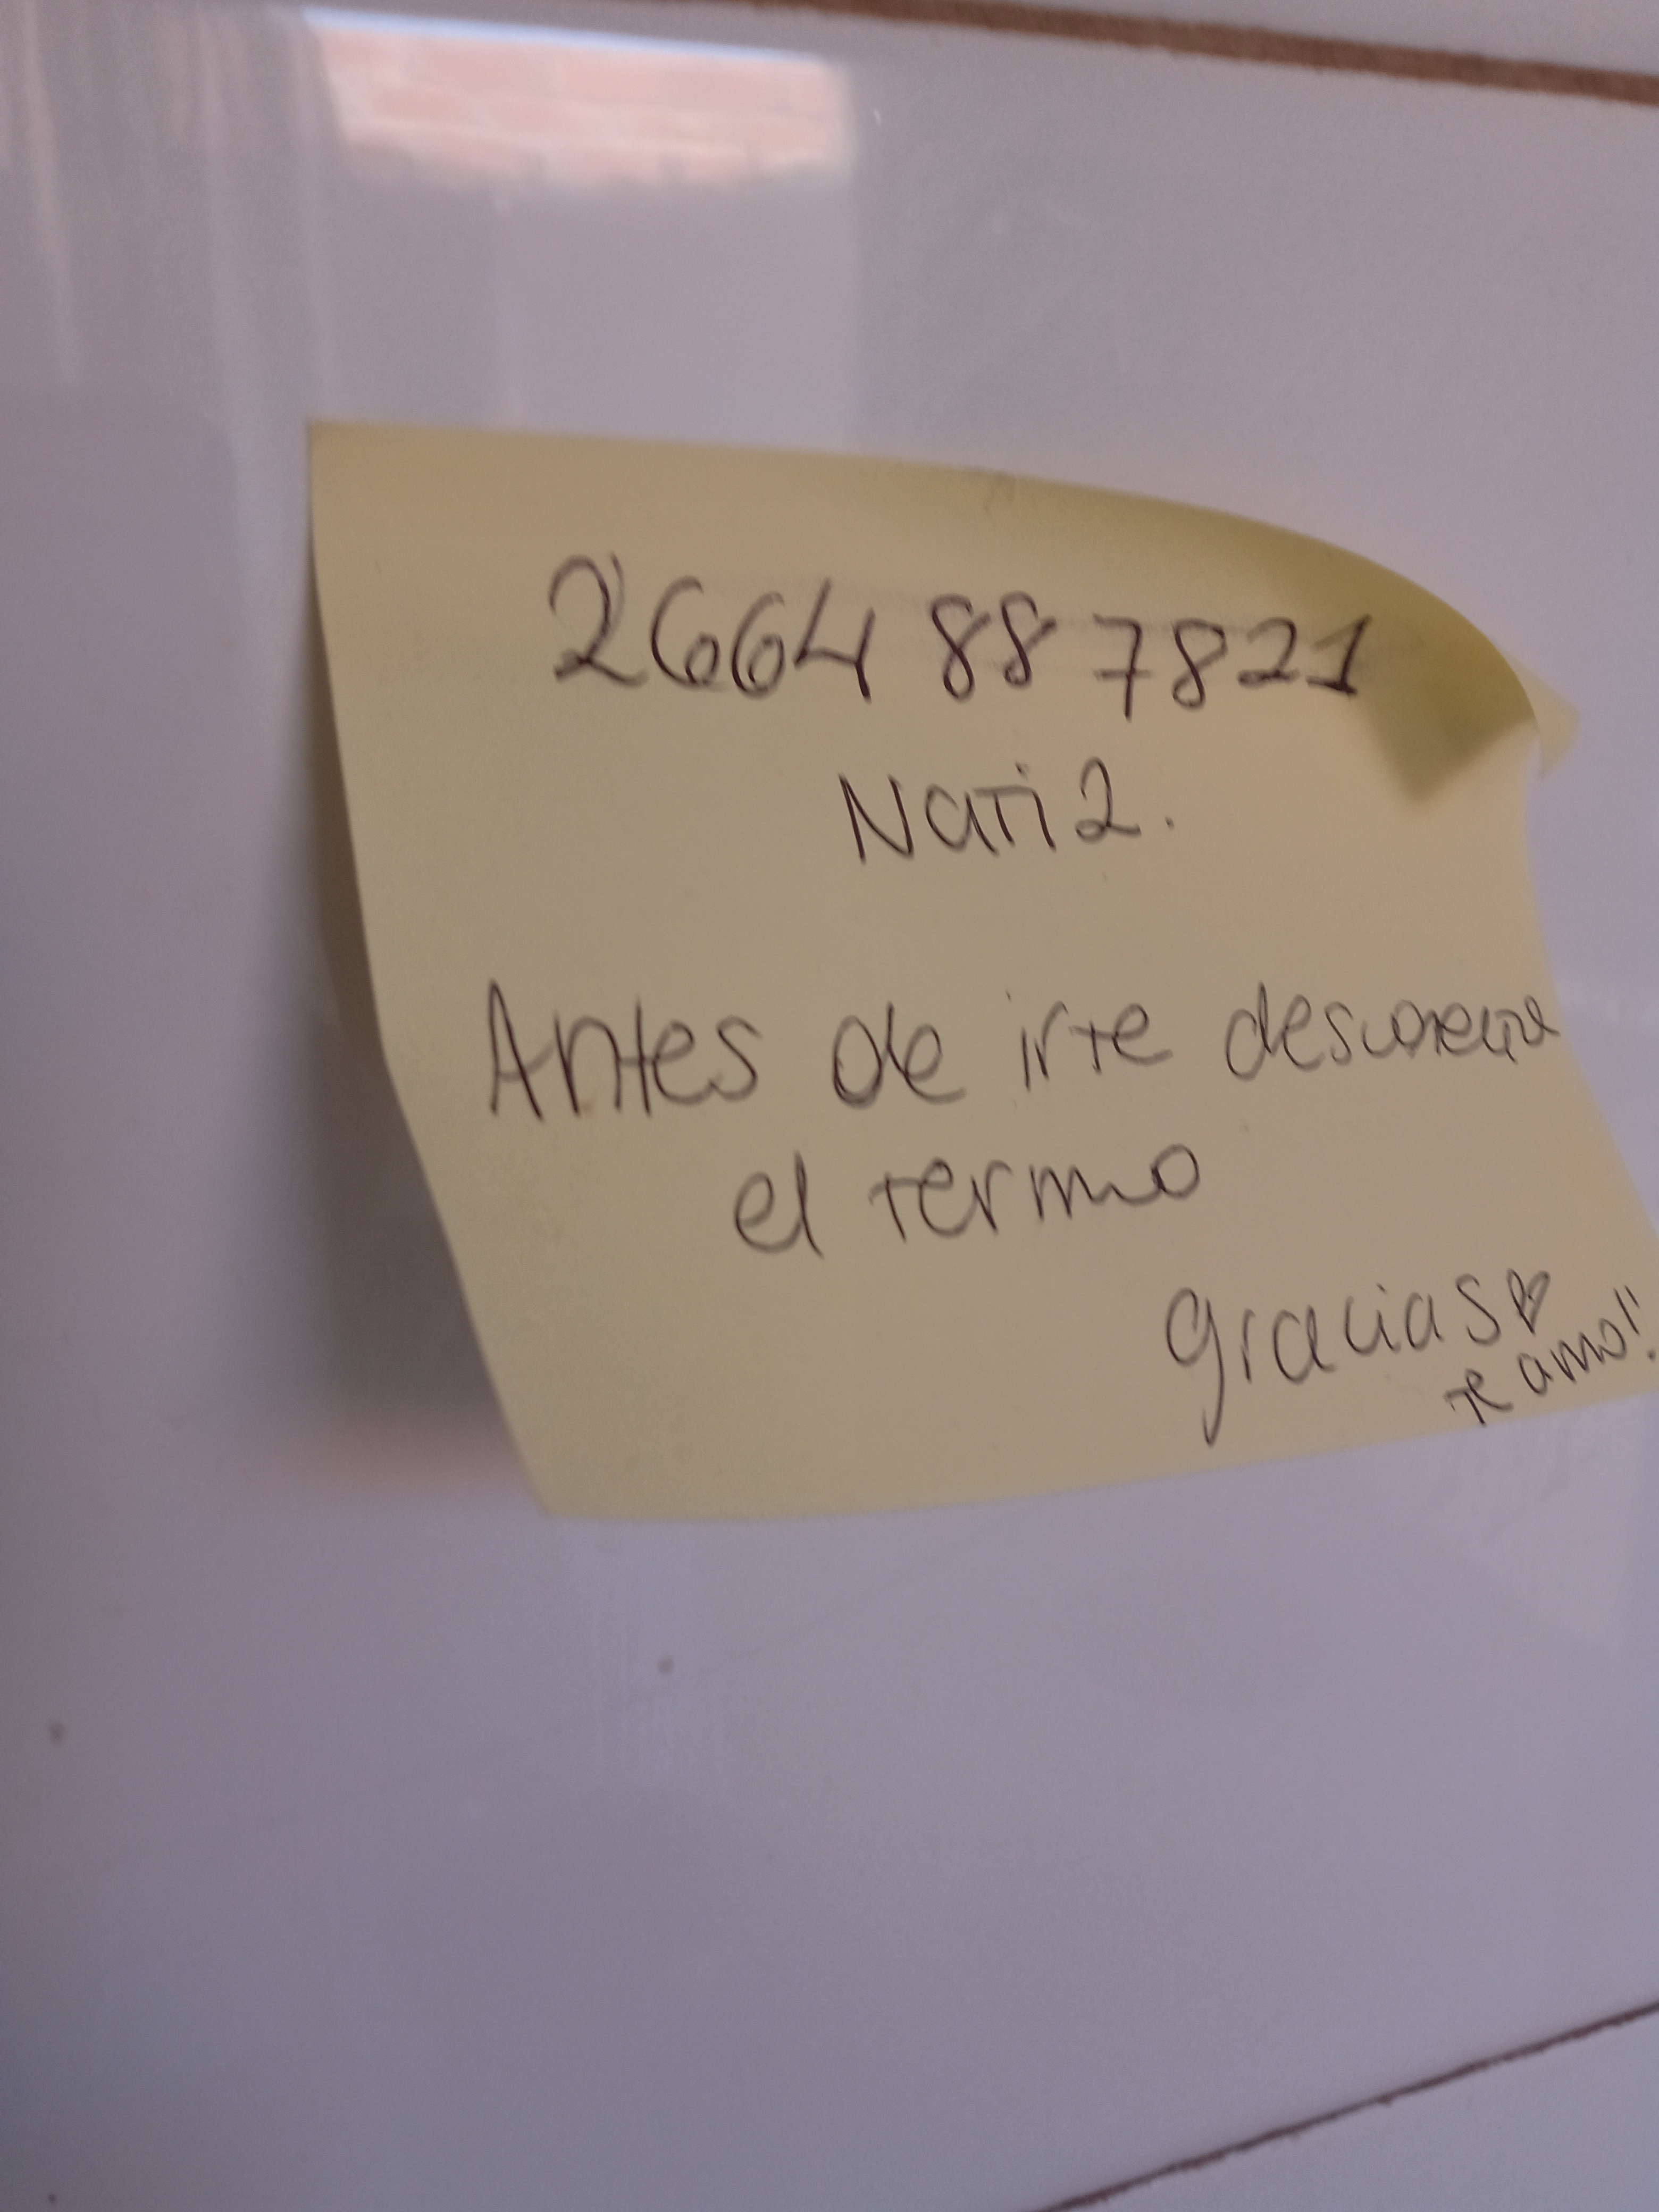 2664 88 7821
Nati 2.
Antes de irte desconecta
el termo
gracias♡
te amo!!